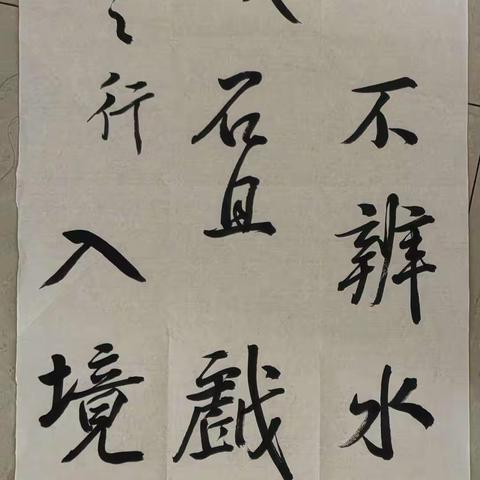 不辨水
石且戲
行入境